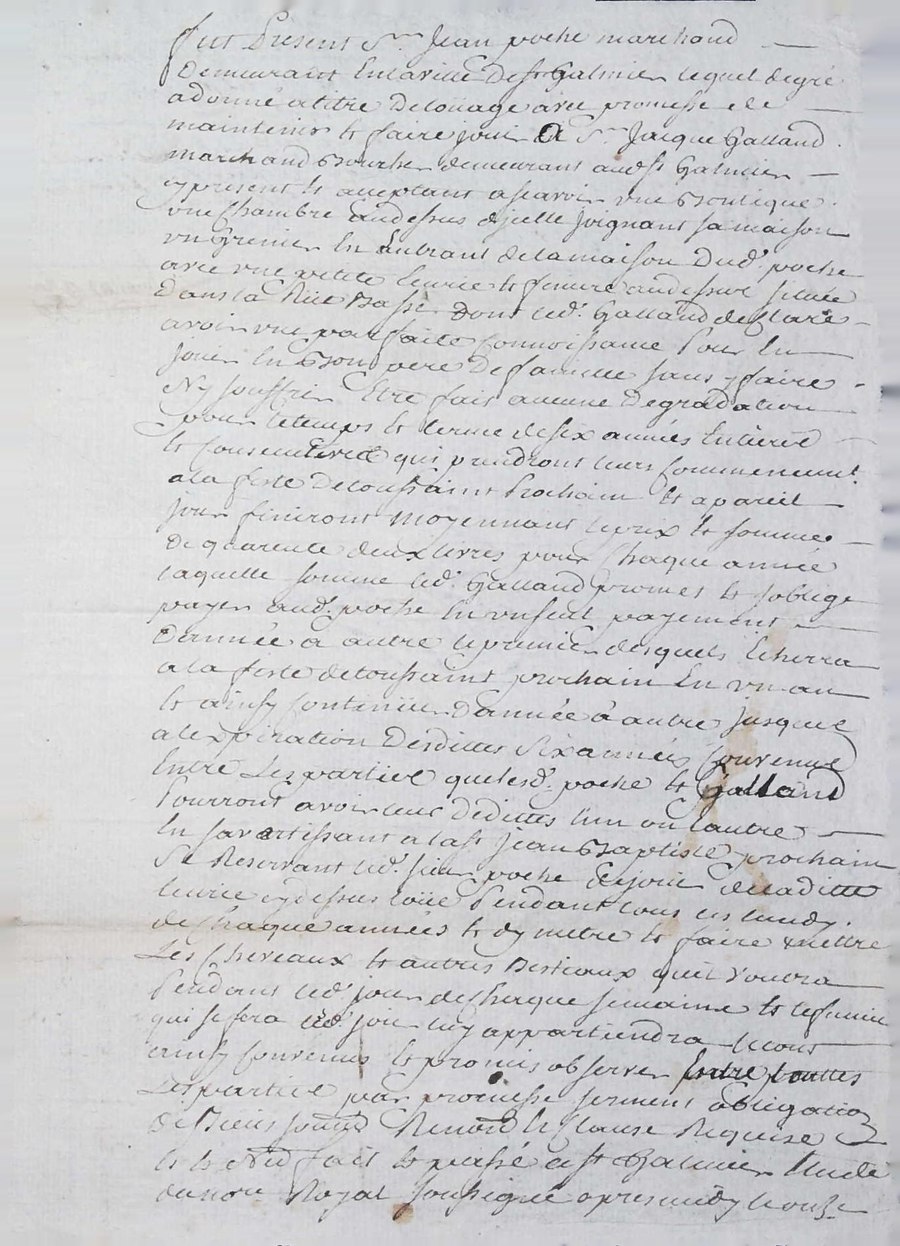 fut Present Sr. Jean poche marchand
demeurant en la ville de st Galmier lequel de gré
a donné a titre de loüage avec promesse de
maintenir et faire jouir A Sr. Jacque Galland
marchand demeurant aud st Galmier
cy present et acceptant ascavoir une Boutique
une Chambre audessus dicelle joignant sa maison
un Grenier En Entrant de la maison dud. poche
avec une petite Ecurie et feniere audessus située
dans la Rüe Basse dont led. Galland declare
avoir une parfaite connoissance Pour En
jouir En Bon pere de famille sans y faire
Ny souffrir Etre fait aucune degradation
pour le temps et terme de six années Entieres
et Consecutives qui prendront leurs Commencement
a la feste de toussaint Prochain et a pareil
jour finiront moyennant le prix et somme
de quarente deux livres pour Chaque année
laquelle somme led. Galland promet et soblige
payer aud. poche En un seul payement
dannée a autre le premier desquels Echerra
a la feste de toussaint prochain En un an
et ainsy Continuer dannée a autre jusques
a lexpiration desdittes six années Convenu
Entre Les parties que lesd. poche et Galland
Pourront avoir leur dedittes lun ou lautre
En savertissant a la st Jean Baptiste prochain
Se Reservant led. sieur poche de jouir de laditte
Ecurie cy dessus loüé Pendant tous les lundy
de Chaque années et dy metre et faire mettre
Les Chevaux et autres Bestiaux quil voudra
Pendant led. jour de Chaque semaine et le fumier
qui se fera led. jour luy appartiendra
ainsy Convenus et promis observer Entre touttes
Les parties par promesse serment obligation
de Biens Clause Requise
fait et passé a st Galmier Etude
du nore Royal soussigné apres midy